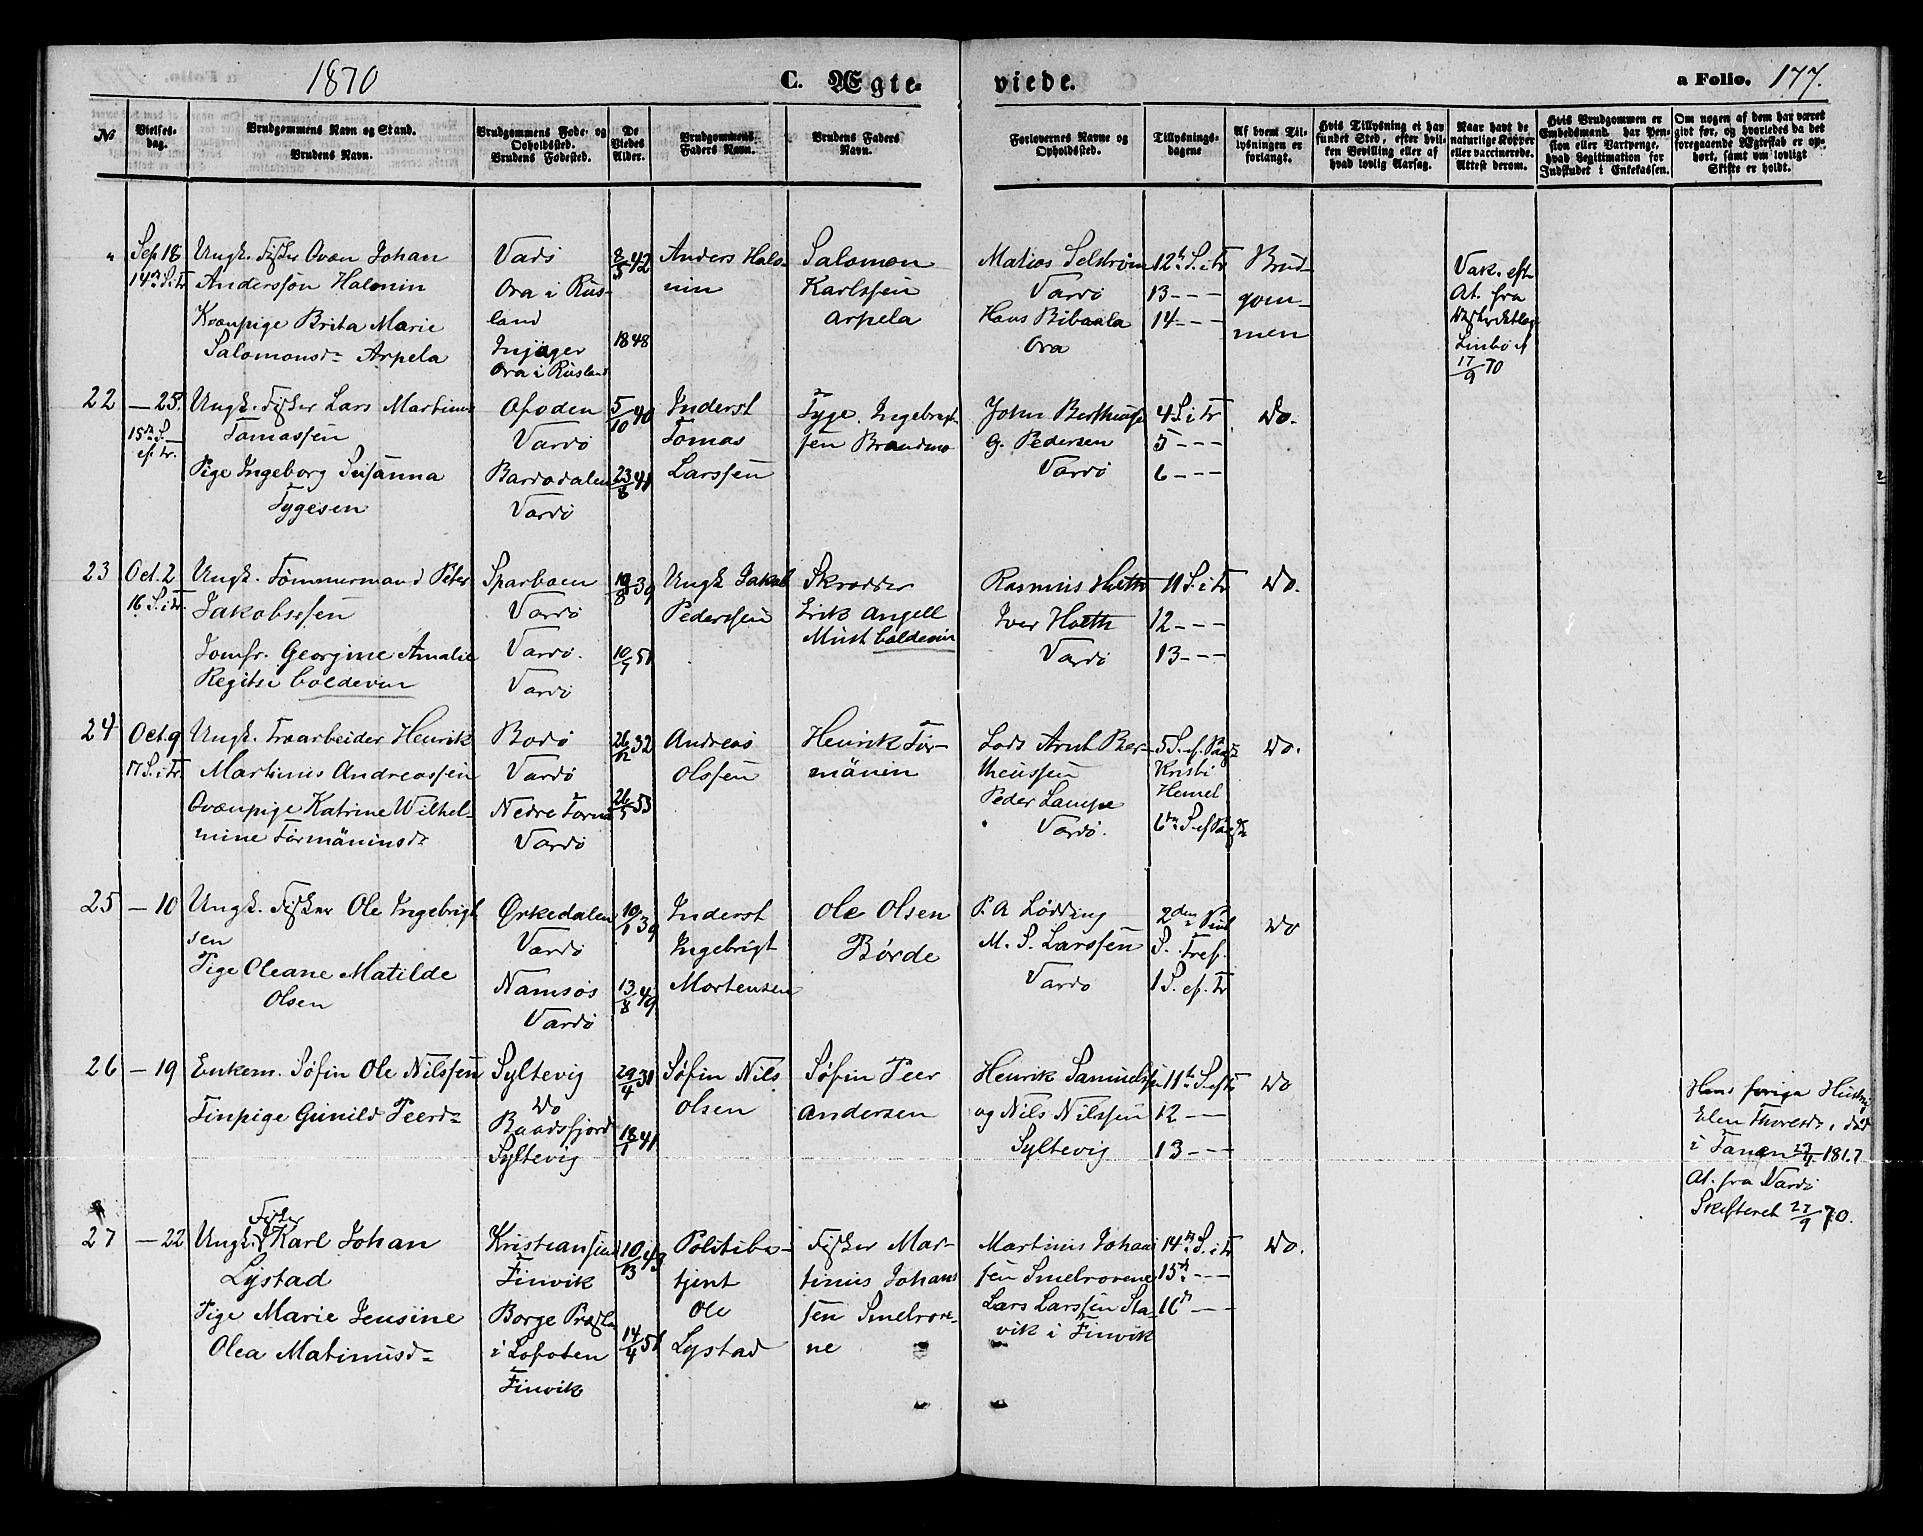 1870
C. Ægte-
viede.
a Folio. 177.
No
Vielses-
dag.
Brudgommens Navn og Stand.
Brudens Navn.
Brudgommens Føde- og
Opholdssted.
Brudens Fødested.
De
Viedes
Alder.
Brudgommens
Faders Navn.
Brudens Faders
Navn.
Forlovernes Navne og
Opholdssted.
Tillysnings-
dagene
Af hvem Til-
lysningen er
forlangt.
Hvis Tillysning ei har
fundet Sted, efter hvil-
ken Bevilling eller af
hvad lovlig Aarsag.
Naar havt de
naturlige Kopper
eller vaccinerede.
Attest derom.
Hvis Brudgommen er
Embedsmand, har Pen-
sion eller Vartpenge,
hvad Legitimation for
Indskudet i Enkekassen.
Om nogen af dem har været
gift før, og hvorledes da det
foregaaende Ægteskab er op-
hørt, samt om lovligt
Skifte er holdt.
" Sep 18
14de S. i Tr
Ungk. Fisker Ovæn Johan
Anderssøn Halonin
Kvænpige Brita Marie
Salomonsdr Arpela
Vadø
Ora i Rus-
land
Injager
Ora i Rusland
8/3 42
1848
Anders Halo-
nin
Salomon
Karlssen
Arpela
Matias Selstrøm
Vardø
Hans Bibaala
Ora
12te S. i Tr
13 - - -
14 - - -
Brud-
gom-
men
Vak. eft
At. fra
17/9 70
22 — 25.
15de S.
ef. Tr.
Ungk. Fisker Lars Martinus
Tomassen
Pige Ingeborg Susanna
Tygesen
Ofoden
Vardø
Bardodalen
Vardø
5/10 40
23/8 41
Inderst
Tomas
Larssen
Tyge Ingebrigt-
sen Brandmo
John
G. Pedersen
Vardø
4 S. i Tr
5 - - -
6 - - -
Do.
23 Oct. 2
16 S. i Tr.
Ungk. Tømmermand Peter
Jakobssen
Jomfr. Georgine Amalie
Regitse Coldevin
Sparboen
Vardø
Vardø.
Vardø
19/8 39
10/7 51
Ungk Jakob
Pederssen
Skrædder
Erik Angell
Must Coldevin
Rasmus Holth
Iver Holth
Vardø
11 S. i Tr
12 - - -
13 - - -
Do.
24 Oct. 9
17 S. i Tr.
Ungk. Træarbeider Henrik
Martinus Andreassen
Qvænpige Katrine Wilhel-
mine Törmäninsdr
Bodø
Vardø
Nedre Torneå
Vardø
26/12 32
26/5 53
Andreas
Olssen
Henrik Tör-
mänin
Lods Arnt Ber-
theussen
Peder Lampe
Vardø.
5 S. ef. Paask
Kristi
Hemel
6te S. ef Paask
Do.
25 — 10
Ungk. Fisker Ole Ingebrigt
sen
Pige Oleane Matilde
Olsen
Ørkedalen
Vardø
Namsos
Vardø
19/6 39
13/8 49
Inderst
Ingebrigt
Mortensen
Ole Olsen
Børde
P. A Lødding
M. S. Larssen
Vardø
2den Pint
S. Tref.
1 S. ef. Tr
Do
26 — 19
Enkem. Søfin Ole Nilssen
Finpige Gunild Peersdr
Syltevig
Do
Baadsfjord
Syltevig
29/4 31
18/1 41
Søfin Nils
Olsen
Søfin Peer
Andersen
Henrik Samuelsen
og Nils Nilssen
Syltevig
11te S. eft Tr
12 - -
13 - - -
Do
Hans forige Hustru
Elen Thoresdr, død
i Tanen
At. fra Vardø
Skifteret 27/9 70.
27 — 22
Fisker
Ungk. Karl Johan
Lystad
Pige Marie Jensine
Olea Matinusdr
Kristiansund
Finvik
Borge Præstg
i Lofoten
Finvik
14/4 51
Politibe-
tjent
Ole
Lystad
Fisker Mar-
tinus Johans
sen Smelrore-
ne
Martinus Johan
sen Smelrorene
Lars Larssen Sta-
vik i Finvik
14de S. i Tr
15de - - -
16de - -
Do.